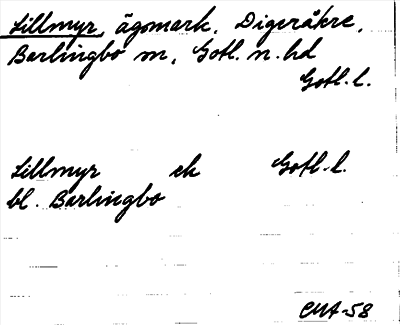 Lillmyr, ägomark, Digeråkre,
Barlingbo sn, Gotl. n. hd
Gotl. l.
Lillmyr ek Gotl. l.
bl. Barlingbo
CMA-58